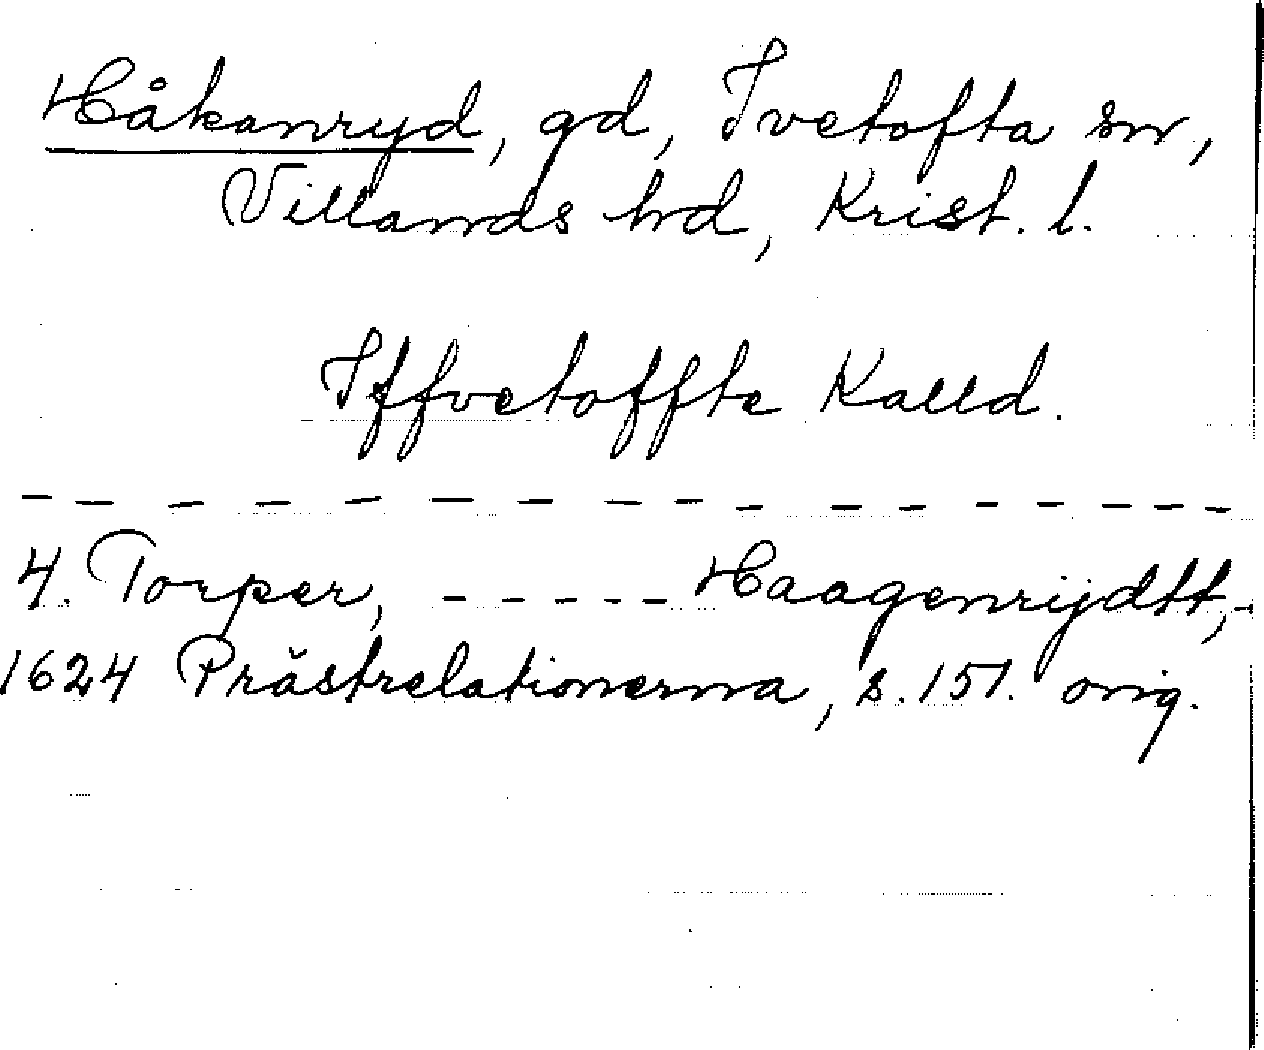 Håkanryd, gd, Ivetofta sn,
Villands hd, Krist. l.
Iffvetoffte Kalld.
— — — — — — — — — — — — — — —
4. Torper, - - - - - Haagenrijdtt, -
1624 Prästrelationerna, s. 151. orig.